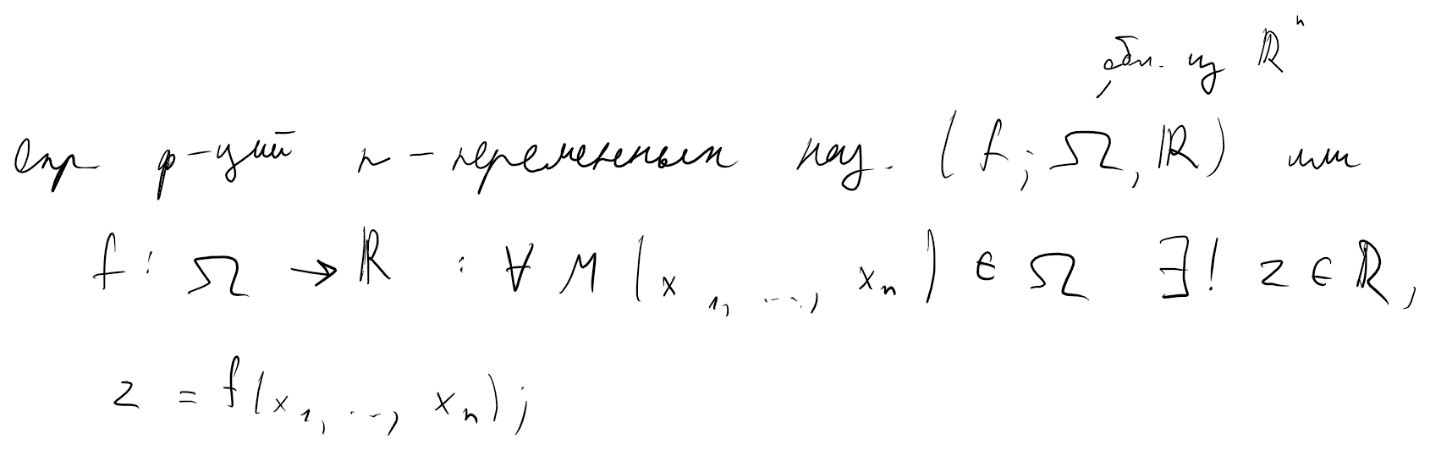 обл. из ℝⁿ
опр ф-ций n-переменных наз. (f; Ω, ℝ) или
f : Ω → ℝ : ∀ M(x₁, ..., xₙ) ∈ Ω ∃! z ∈ ℝ,
z = f(x₁, ..., xₙ);